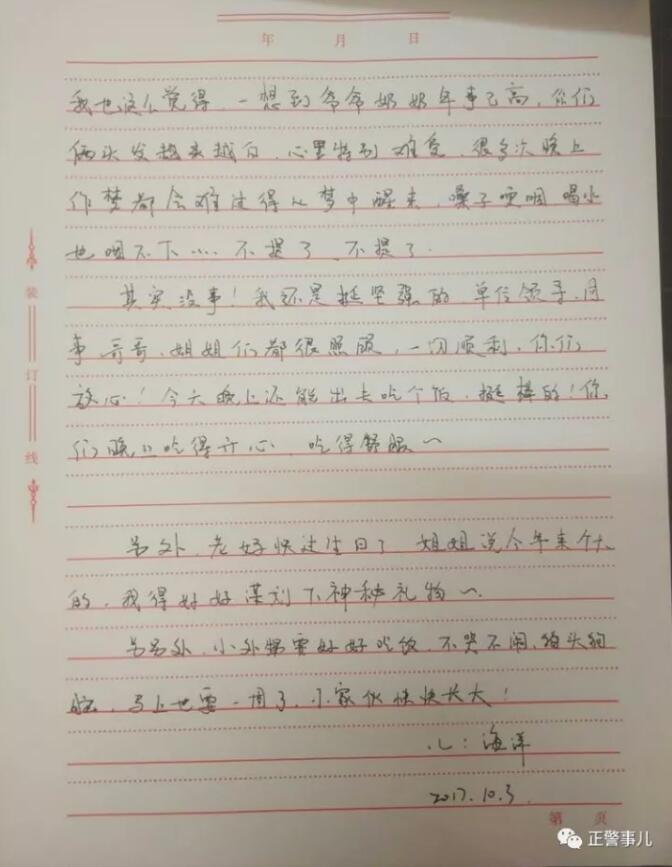 年 月 日
我也这么觉得，一想到爷爷奶奶年事已高，你们
俩头发越来越白，心里特别难受，很多次晚上
作梦都会难过得从梦中醒来，嗓子哽咽，喝水
也咽不下……不提了，不提了。
其实没事！我还是挺坚强的，单位领导、同
事、哥哥、姐姐们都很照顾，一切顺利，你们
放心！今天晚上还能出去吃个饭，挺棒的！你
们晚上吃得开心，吃得舒服～
另外，老好快过生日了，姐姐说今年来个大
的，我得好好谋划下神秘礼物～
另另外，小外甥要好好吃饭，不哭不闹，
马上也要一周了，小家伙快快长大！
儿：海洋
2017.10.3
装
订
线
第 页
正警事儿